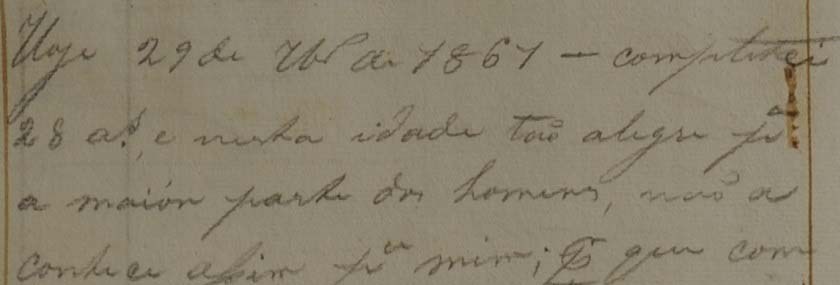 Hoje 29 de 7bro de 1861 — completei
28 a.s, e nesta idade tão alegre pa
a maior parte dos homens, não a
conhece assim pa mim; que com